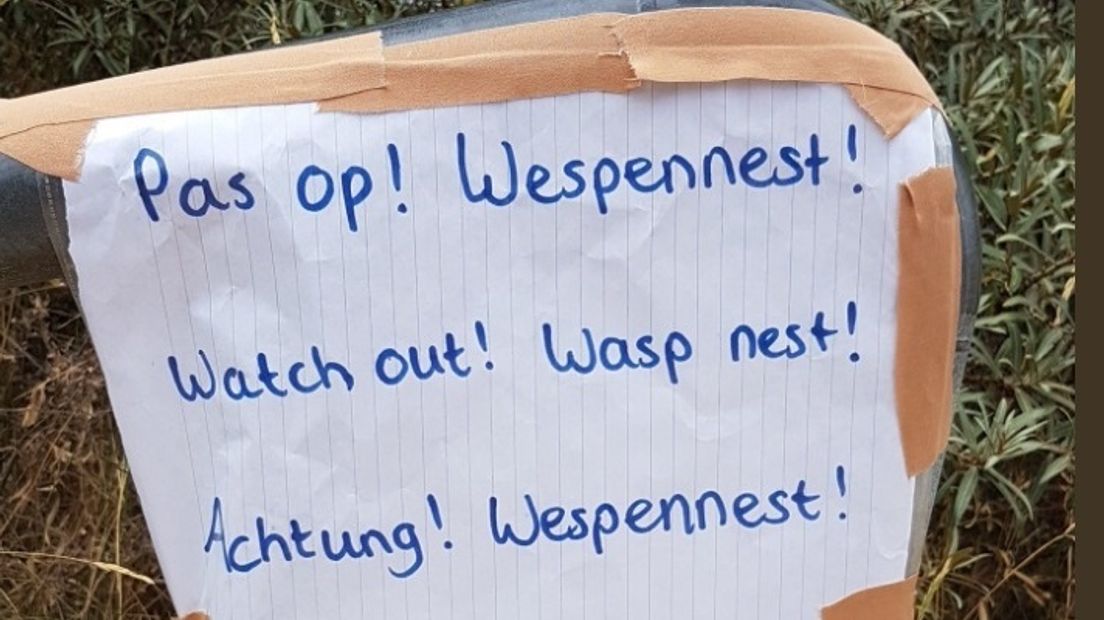 Pas op! Wespennest!
Watch out! Wasp nest!
Achtung! Wespennest!